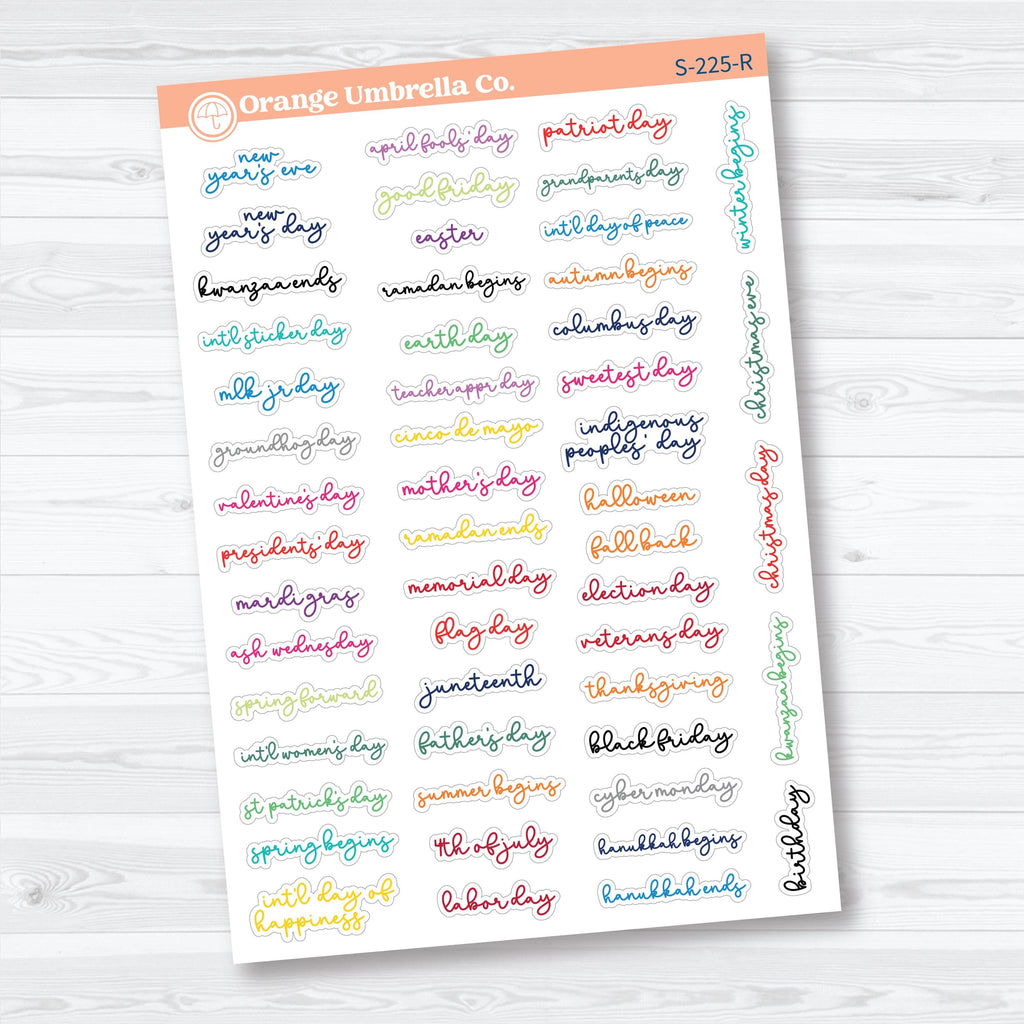 Orange Umbrella Co.
S-225-R
new
year's eve
new
year's day
kwanzaa ends
int'l sticker day
mlk jr day
groundhog day
valentine's day
presidents' day
mardi gras
ash wednesday
spring forward
int'l women's day
st patrick's day
spring begins
int'l day of
happiness
april fools' day
good friday
easter
ramadan begins
earth day
teacher appr day
cinco de mayo
mother's day
ramadan ends
memorial day
flag day
juneteenth
father's day
summer begins
4th of july
labor day
patriot day
grandparents day
int'l day of peace
autumn begins
columbus day
sweetest day
indigenous
peoples' day
halloween
fall back
election day
veterans day
thanksgiving
black friday
cyber monday
hanukkah begins
hanukkah ends
winter begins
christmas eve
christmas day
kwanzaa begins
birthday